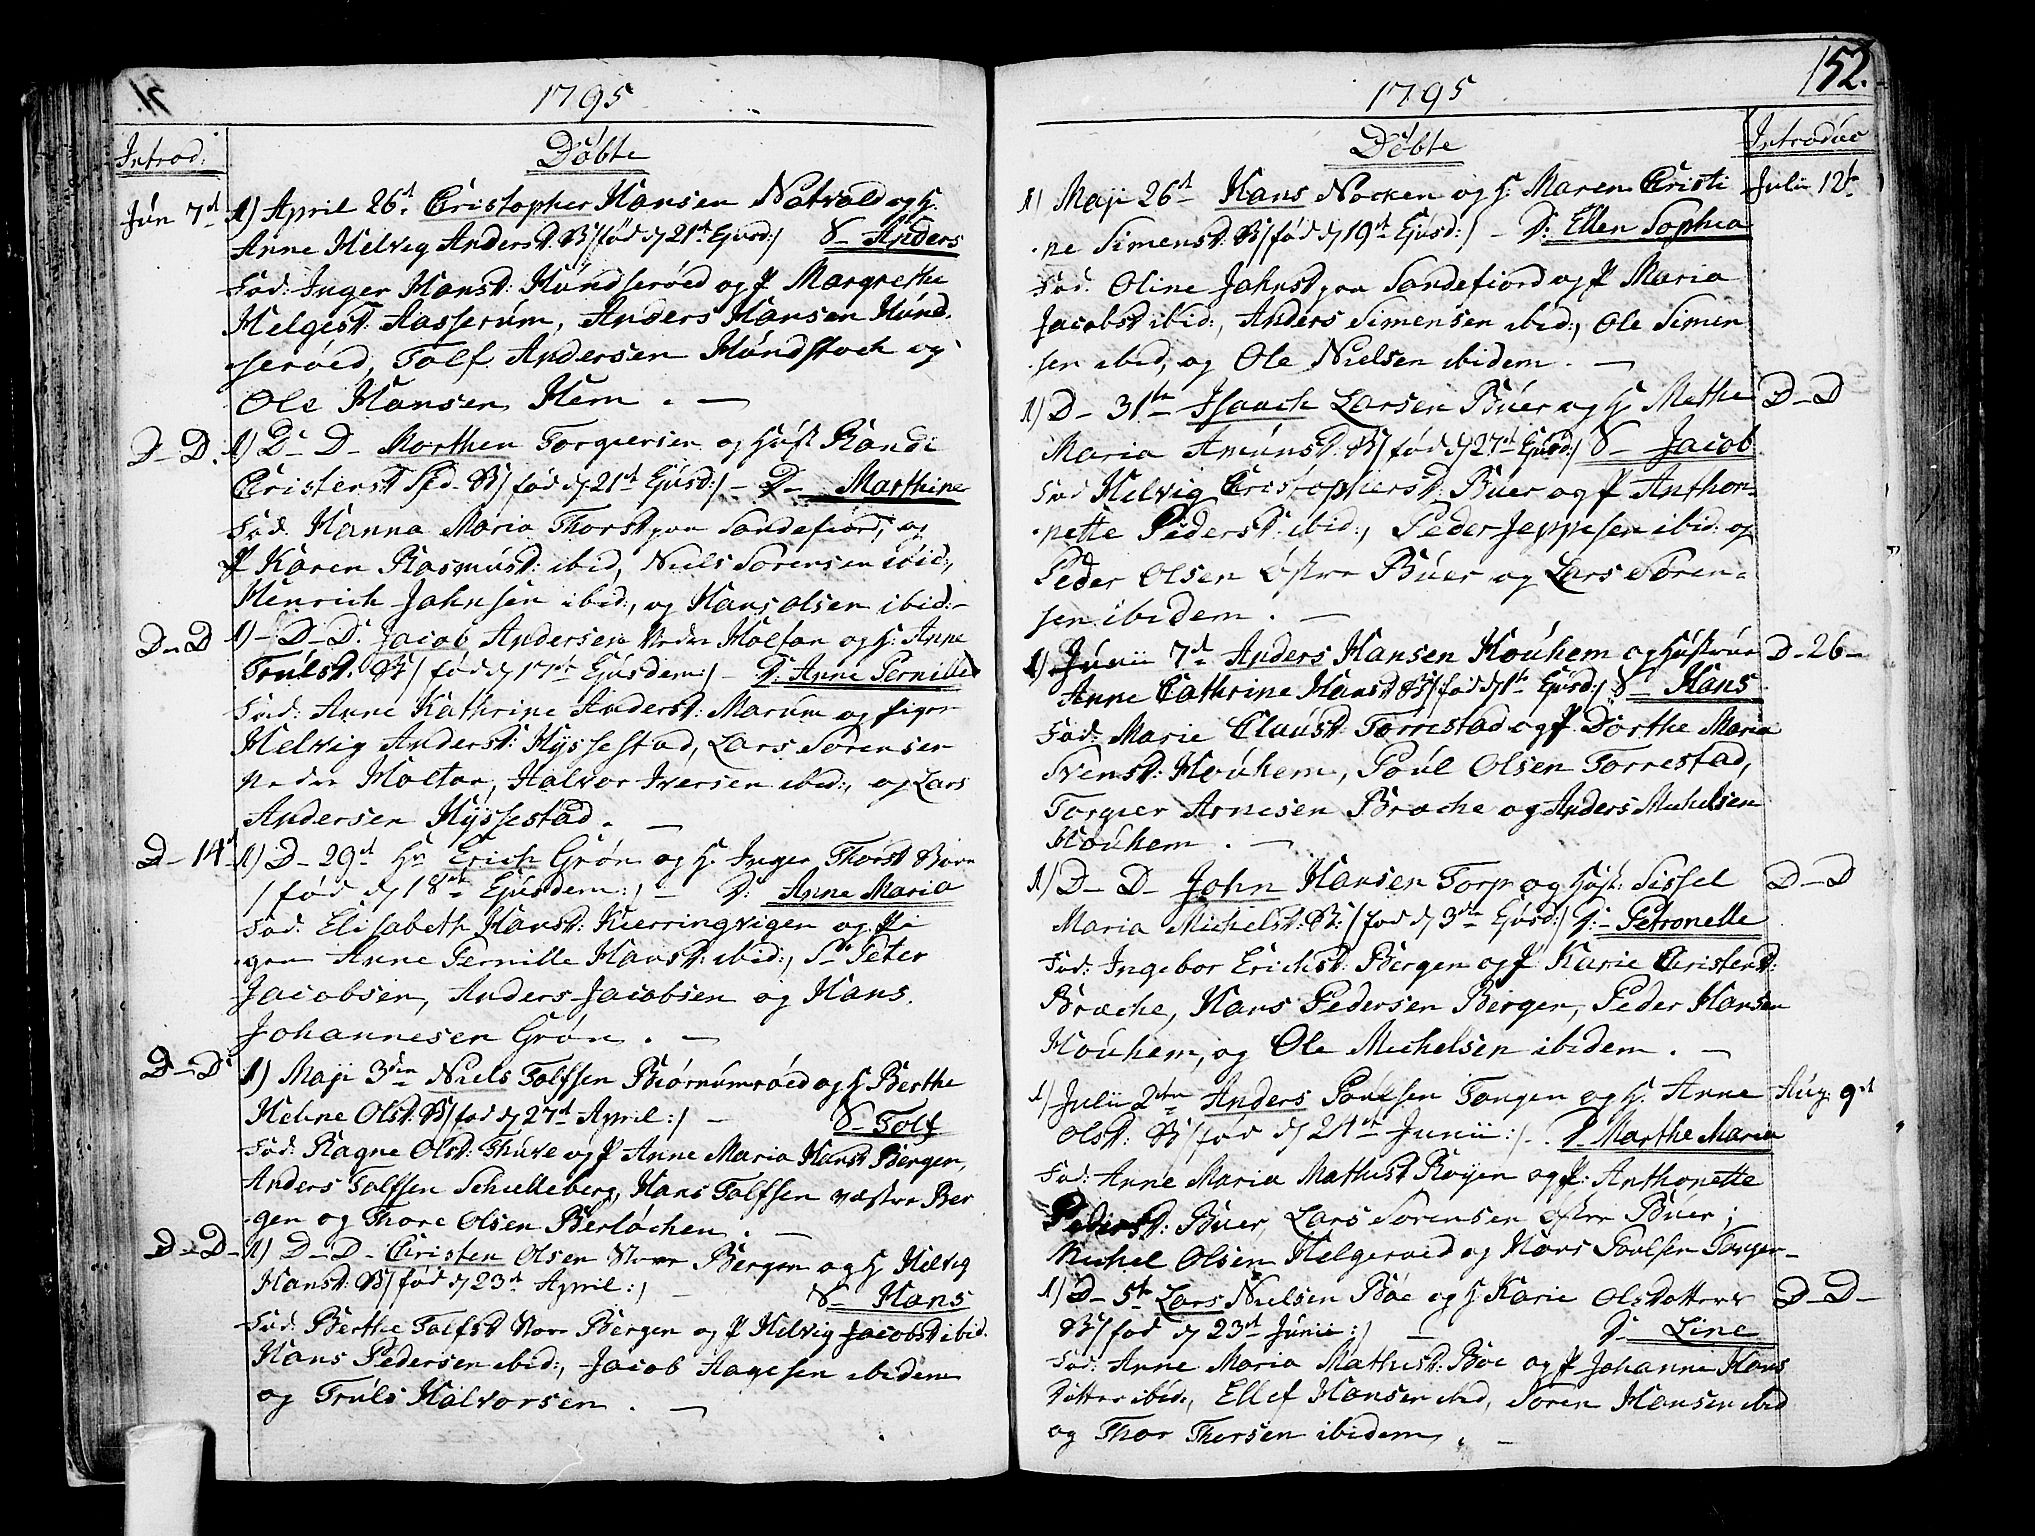 51.
1795
Introd:
Döbte
Jun 7d
1) April 26d Christopher Hansen Natvald og H.
Anne Helvig Andersd: B/ fød d 21d Ejusd:/ S- Anders
Fad: Inger Hansd: Hundseröed og P Margrethe
Helgesd: Aasserum, Anders Hansen Hund-
seröed, Tolf Andersen Hundstock og
Ole Hansen Hem. -
D-D.
1) D- D- Morthen Torgiersen og Hust Randi
Christensd Sød- B/ fød d 21d Ejusd:/ - D- Marthine
Fad: Hanna Maria Thorsd paa Sandefiord, og
P Karen Rasmusd: ibid, Niels Sörensen ibid:,
Henrich Johnsen ibid:, og Hans Olsen ibid:-
D-D
1)- D-D. Jacob Andersen Nedre Holtan og H: Anne
Trulsd. B/ fød d 17de Ejusdem:/ - D. Anne Pernille
Fad: Anne Kathrine Andersd: Marum og Pigen
Helvig Andersd: Hyssestad, Lars Sörensen
Nedre Holtan, Halvor Iversen ibid:, og Lars
Andersen Hyssestad. -
D- 14d
1) D- 29d Hr. Erich Grön og H. Inger Thorsd Barn
/ fød d 18de Ejusdem:/ - D: Anne Maria
Fad: Elisabeth Hansd: Kierringvigen og Pi
gen Anne Pernille Hansd: ibid:, Sr Peter
Jacobsen, Anders Jacobsen og Hans
Johannesen Grön. -
D-D
1) Maji 3die Niels Tolfsen Biörnumröed og H Berthe
Heline Olsd: B/ fød d 27d April:/ - S- Tolf
Fad: Ragne Olsd: Thuve og P Anne Maria Hansd Bergen,
Anders Tolfsen Schielleberg, Hans Tolfsen vestre Ber
gen og Thore Olsen Berlöchen. -
D-D-
1) D-D- Christen Olsen Store Bergen og H Helvig
Hansd: B/ fød d 23d April:/ - S- Hans
Fad: Berthe Tolfsd Store Bergen og P Helvig Jacobsd ibid.
Hans Pedersen ibid:, Jacob Aagesen ibidem
og Truls Halvorsen. -
152.
1795
Döbte
Introduc
Julii 12te
1) Maji 26d Hans Nocken og H: Maren Christi
ne Simensd: B/ fød d 19d Ejusd:/ - D: Ellen Sophia
Fad: Oline Johnsd paa Sandefiord og P Maria
Jacobsd ibid:, Anders Simensen ibid:, Ole Simen
sen ibid, og Ole Nielsen ibidem. -
D-D
1) D- 31te Isaach Larsen Buer og H Methe
Maria Amundsd: B/ fød d 27d Ejusd:/ S- Jacob
Fad Helvig Christophersd: Buer og P Anthon-
nette Pedersd: ibid:, Peder Jeppesen ibid: og
Peder Olsen Östre Buer og Lars Sören-
sen ibidem. -
D- 26-
1) Junii 7d Anders Hansen Houhem og Hustrue
Anne Cathrine Hansd B/ fød d 1te Ejusd:/ S- Hans
Fad: Marie Clausd: Torrestad og P Dorthe Maria
Svensd: Houhem, Poul Olsen Torrestad,
Torgier Arnesen Brache og Anders Michelsen
Houhem. -
D-D
1) D- D- John Hansen Torp og Hust: Sissel
Maria Michelsd: B: / fød d 3die Ejusd:/ D: - Petronelle
Fad: Ingebor Erichsd: Bergen og P Karie Christensd:
Brache, Hans Pedersen Bergen, Peder Hansen
Houhem, og Ole Michelsen ibidem. -
Aug: 9d
1) Julii 2den Anders Poulsen Tangen og H. Anne
Olsd: B/ fød d 24de Junii:/ - D Marthe Maria
Fad: Anne Maria Mathisd Röyen og P: Anthonette
Pedersd: Buer, Lars Sörensen Östre Buer;
Michel Olsen Helgeroed og Hans Poulsen Tangen-
D-D-
1) D- 5te Lars Nielsen Böe og H Karie Olsdatters
B/ fød d 23d Junii:/ - D- Line
Fad: Anne Maria Mathisd: Böe og P Johanne Hans
datter ibid:, Ellef Hansen ibid, Sören Hansen ibid
og Thor Thorsen ibidem. -